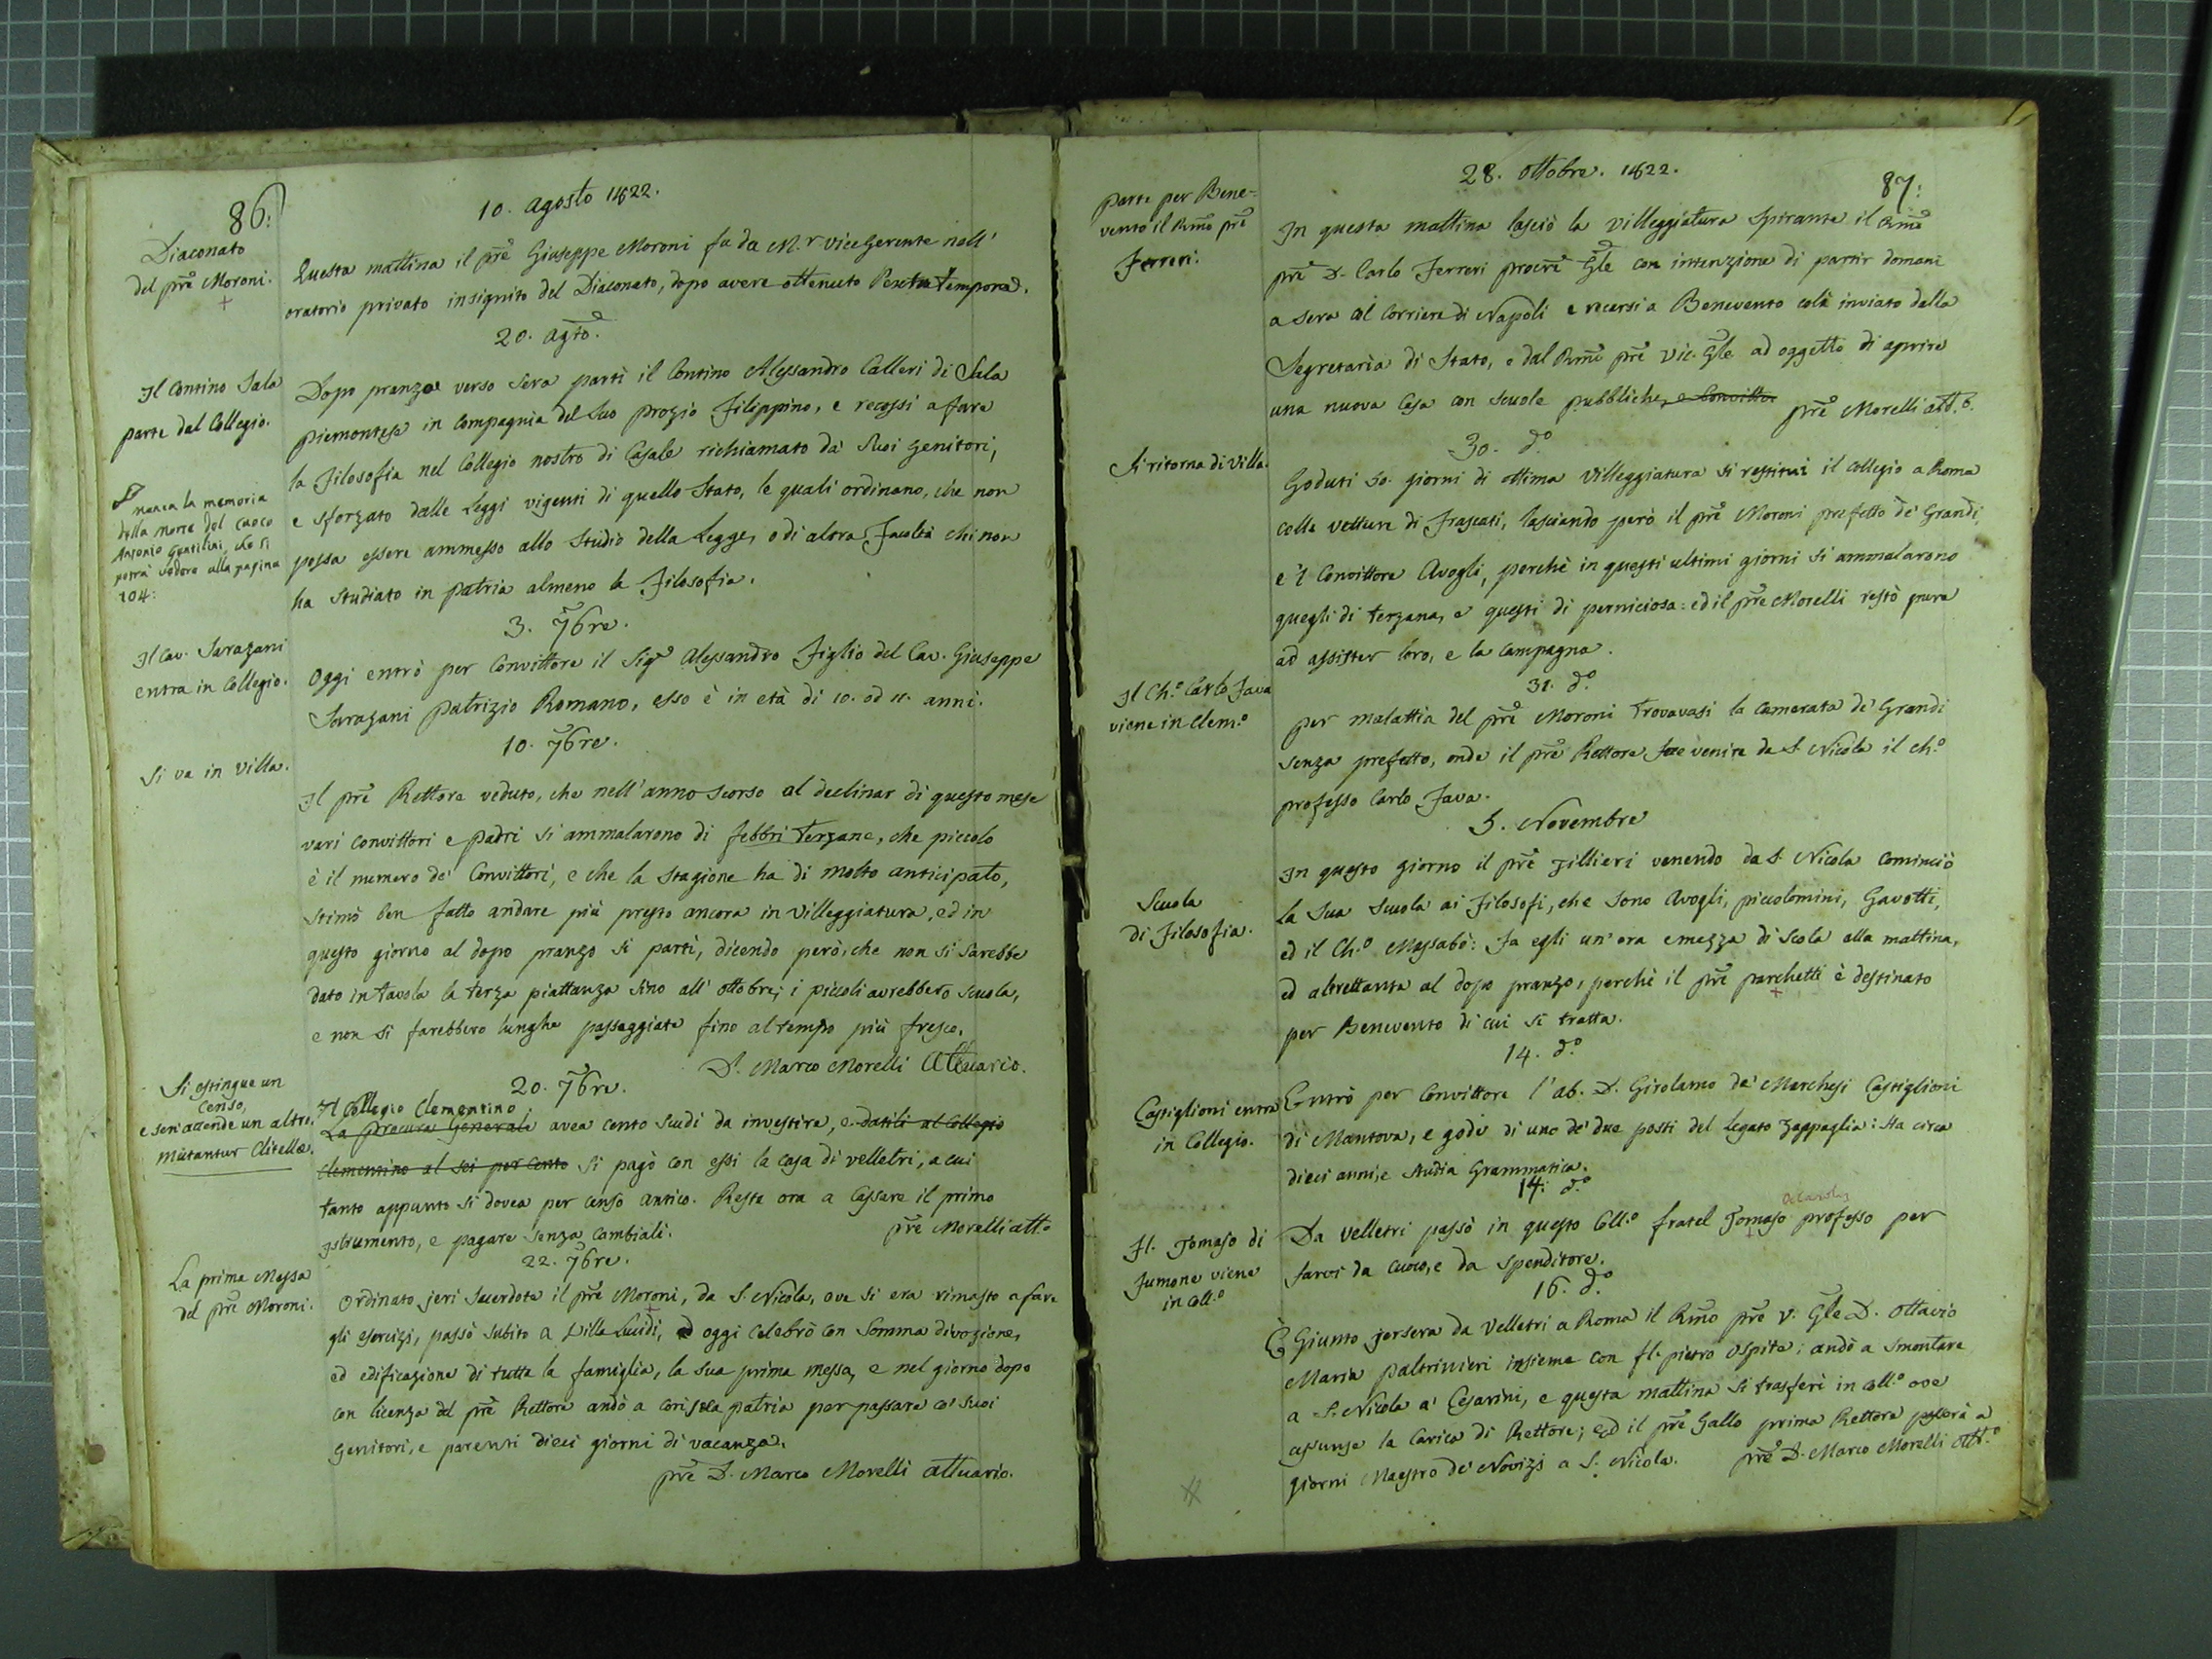 86:
10. Agosto 1822.
Diaconato
del pre Moroni.
Questa mattina il pre Giuseppe Moroni fu da M.r ViceGerente nell'
oratorio privato insignito del Diaconato, dopo avere ottenuto l'extra tempora.
20. Agto.
Il Contino Sala
parte dal Collegio.
Dopo pranzo verso sera partì il Contino Alessandro Calleri di Sala
piemontese in compagnia del suo prozio Filippino, e recossi a fare
la Filosofia nel Collegio nostro di Casale richiamato da' suoi genitori,
e sforzato dalle Leggi vigenti di quello Stato, le quali ordinano, che non
possa essere ammesso allo studio della Legge, o di altra Facoltà chi non
ha studiato in patria almeno la Filosofia.
manca la memoria
della morte del cuoco
Antonio Gentilini, che si
potrà vedere alla pagina
104:
3. 7bre.
Il Cav. Sarazani
entra in Collegio.
Oggi entrò per Convittore il Sigr Alessandro Figlio del Cav. Giuseppe
Sarazani Patrizio Romano, esso è in età di 10. od 11. anni.
10. 7bre.
Si va in villa.
Il pre Rettore veduto, che nell'anno scorso al declinar di questo mese
vari Convittori e padri si ammalarono di febbri terzane, che piccolo
è il numero de' Convittori, e che la stagione ha di molto anticipato,
stimò ben fatto andare più presto ancora in villeggiatura, ed in
questo giorno al dopo pranzo si partì, dicendo però, che non si sarebbe
dato in tavola la terza piattanza sino all'ottobre; i piccoli avrebbero scuola,
e non si farebbero lunghe passeggiate fino al tempo più fresco.
D. Marco Morelli Attuario.
20. 7bre.
Si estingue un
Censo,
e sen'accende un altro.
mutantur Clitellæ.
Il Collegio Clementino
La procura Generale avea cento scudi da investire, e datili al Collegio
Clementino al sei per cento si pagò con essi la casa di Velletri, a cui
tanto appunto si dovea per censo antico. Resta ora a cassare il primo
istrumento, e pagare senza cambiali. pre Morelli att.o
22. 7bre.
La prima Messa
del pre Moroni.
Ordinato jeri Sacerdote il pre Moroni, da S. Nicola, ove si era rimasto a fare
gli esercizj, passò subito a Villa Lucidi, ed oggi celebrò con somma divozione,
ed edificazione di tutta la famiglia, la sua prima messa, e nel giorno dopo
con licenza del pre Rettore andò a Cori sua patria per passare co' suoi
genitori, e parenti dieci giorni di vacanza.
pre D. Marco Morelli attuario.
28. Ottobre. 1822.
87:
parte per Bene-
vento il Rmo pre
Ferreri.
In questa mattina lasciò la villeggiatura spirante il Rmo
pre D. Carlo Ferreri procre Gle con intenzione di partir domani
a sera col Corriere di Napoli e recarsi a Benevento colà inviato dalla
Segretaria di Stato, e dal Rmo pre Vic. Gle ad oggetto di aprire
una nuova Casa con scuole pubbliche, e Convitto. pre Morelli att.o
30. do.
Si ritorna di villa.
Goduti 50. giorni di ottima villeggiatura si restituì il Collegio a Roma
colle vetture di Frascati, lasciando però il pre Moroni prefetto de' Grandi,
e 'l Convittore Avogli, perchè in questi ultimi giorni si ammalarono
quegli di terzana, e questi di perniciosa: ed il pre Morelli restò pure
ad assister loro, e la Campagna.
31. do.
Il Ch.o Carlo Fava
viene in Clem.o
per malattia del pre Moroni trovavasi la Camerata de' Grandi
senza prefetto, onde il pre Rettore fece venire da S. Nicola il Ch.o
professo Carlo Fava.
5. Novembre
Scuola
di Filosofia.
In questo giorno il pre Zillieri venendo da S. Nicola cominciò
la sua scuola ai Filosofi, che sono Avogli, Piccolomini, Gavotti,
ed il Ch.o Massabò: Fa egli un'ora e mezza di scola alla mattina,
ed altrettanta al dopo pranzo, perchè il pre Parchetti è destinato
per Benevento di cui si tratta.
14. do.
Castiglioni entra
in Collegio.
Entrò per Convittore l'ab. D. Girolamo de' Marchesi Castiglioni
di Mantova, e gode di uno de' due posti del Legato Zappaglia: Ha circa
dieci anni, e studia Grammatica.
14. do.
Fl. Tomaso di
Fumone viene
in Coll.o
Da Velletri passò in questo Coll.o fratel Tomaso professo per
farvi da cuoco, e da spenditore.
16. do.
È Giunto jersera da Velletri a Roma il Rmo pre V. Gle D. Ottavio
Maria Paltrinieri insieme con fl. pietro ospite; andò a smontare
a S. Nicola a' Cesarini, e questa mattina si trasferì in Coll.o ove
assunse la Carica di Rettore; ed il pre Gallo prima Rettore passerà a
giorni Maestro de' Novizj a S. Nicola. pre D. Marco Morelli att.o